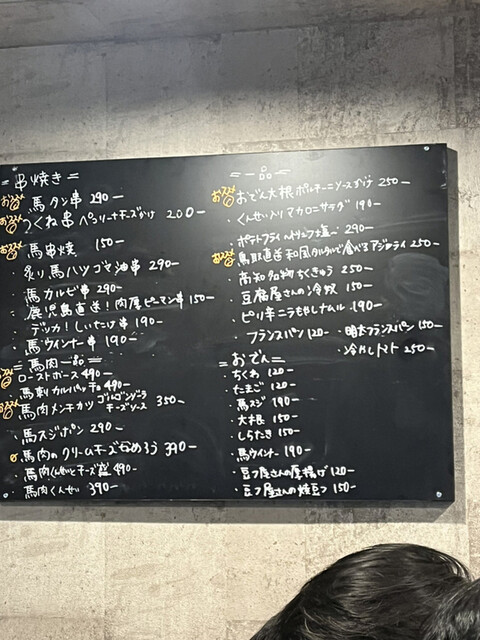 =串焼き=
おススメ 馬タン串 290-
おススメ つくね串 ペコリーナチーズがけ 200-
おススメ 馬串焼 150-
・炙り馬ハツゴマ油串 290-
・馬カルビ串 290-
・鹿児島直送!肉厚ピーマン串 150-
・デッカ!しいたけ串 190-
・馬ウインナー串 190-
=馬肉一品=
ローストホース 490-
・馬刺カルパッチョ 490-
おススメ 馬肉メンチカツ ゴルゴンゾーラ
チーズソース 350-
・馬スジポン 290-
・馬肉のクリームチーズなめろう 390-
・馬肉くんせいとチーズ盛 490-
・馬肉くんせい 390-
=一品=
おススメ おでん大根ポルチーニソースがけ 250-
・くんせい入りマカロニサラダ 190-
・ポテトフライ 290-
おススメ 鳥取直送 タルタルで食べるアジフライ 250-
・高知名物ちくきゅう 250-
・豆腐屋さんの冷奴 150-
・ピリ辛ニラもやしナムル 190-
・フランスパン 120- ・明太フランスパン 150-
・冷やしトマト 250-
=おでん=
・ちくわ 120-
・たまご 120-
・馬スジ 190-
・大根 150-
・しらたき 150-
・馬ウインナー 190-
・豆フ屋さんの厚揚げ 120-
・豆フ屋さんの焼豆フ 150-